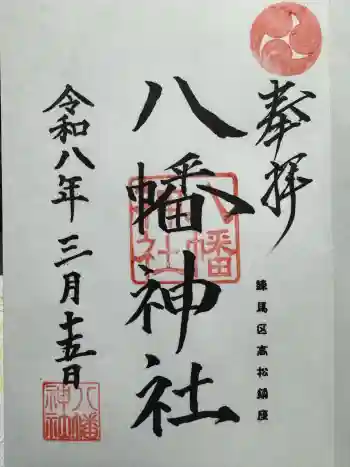 奉拝
練馬区高松鎮座
八幡神社
八幡神社
令和八年三月十五日
八幡神社